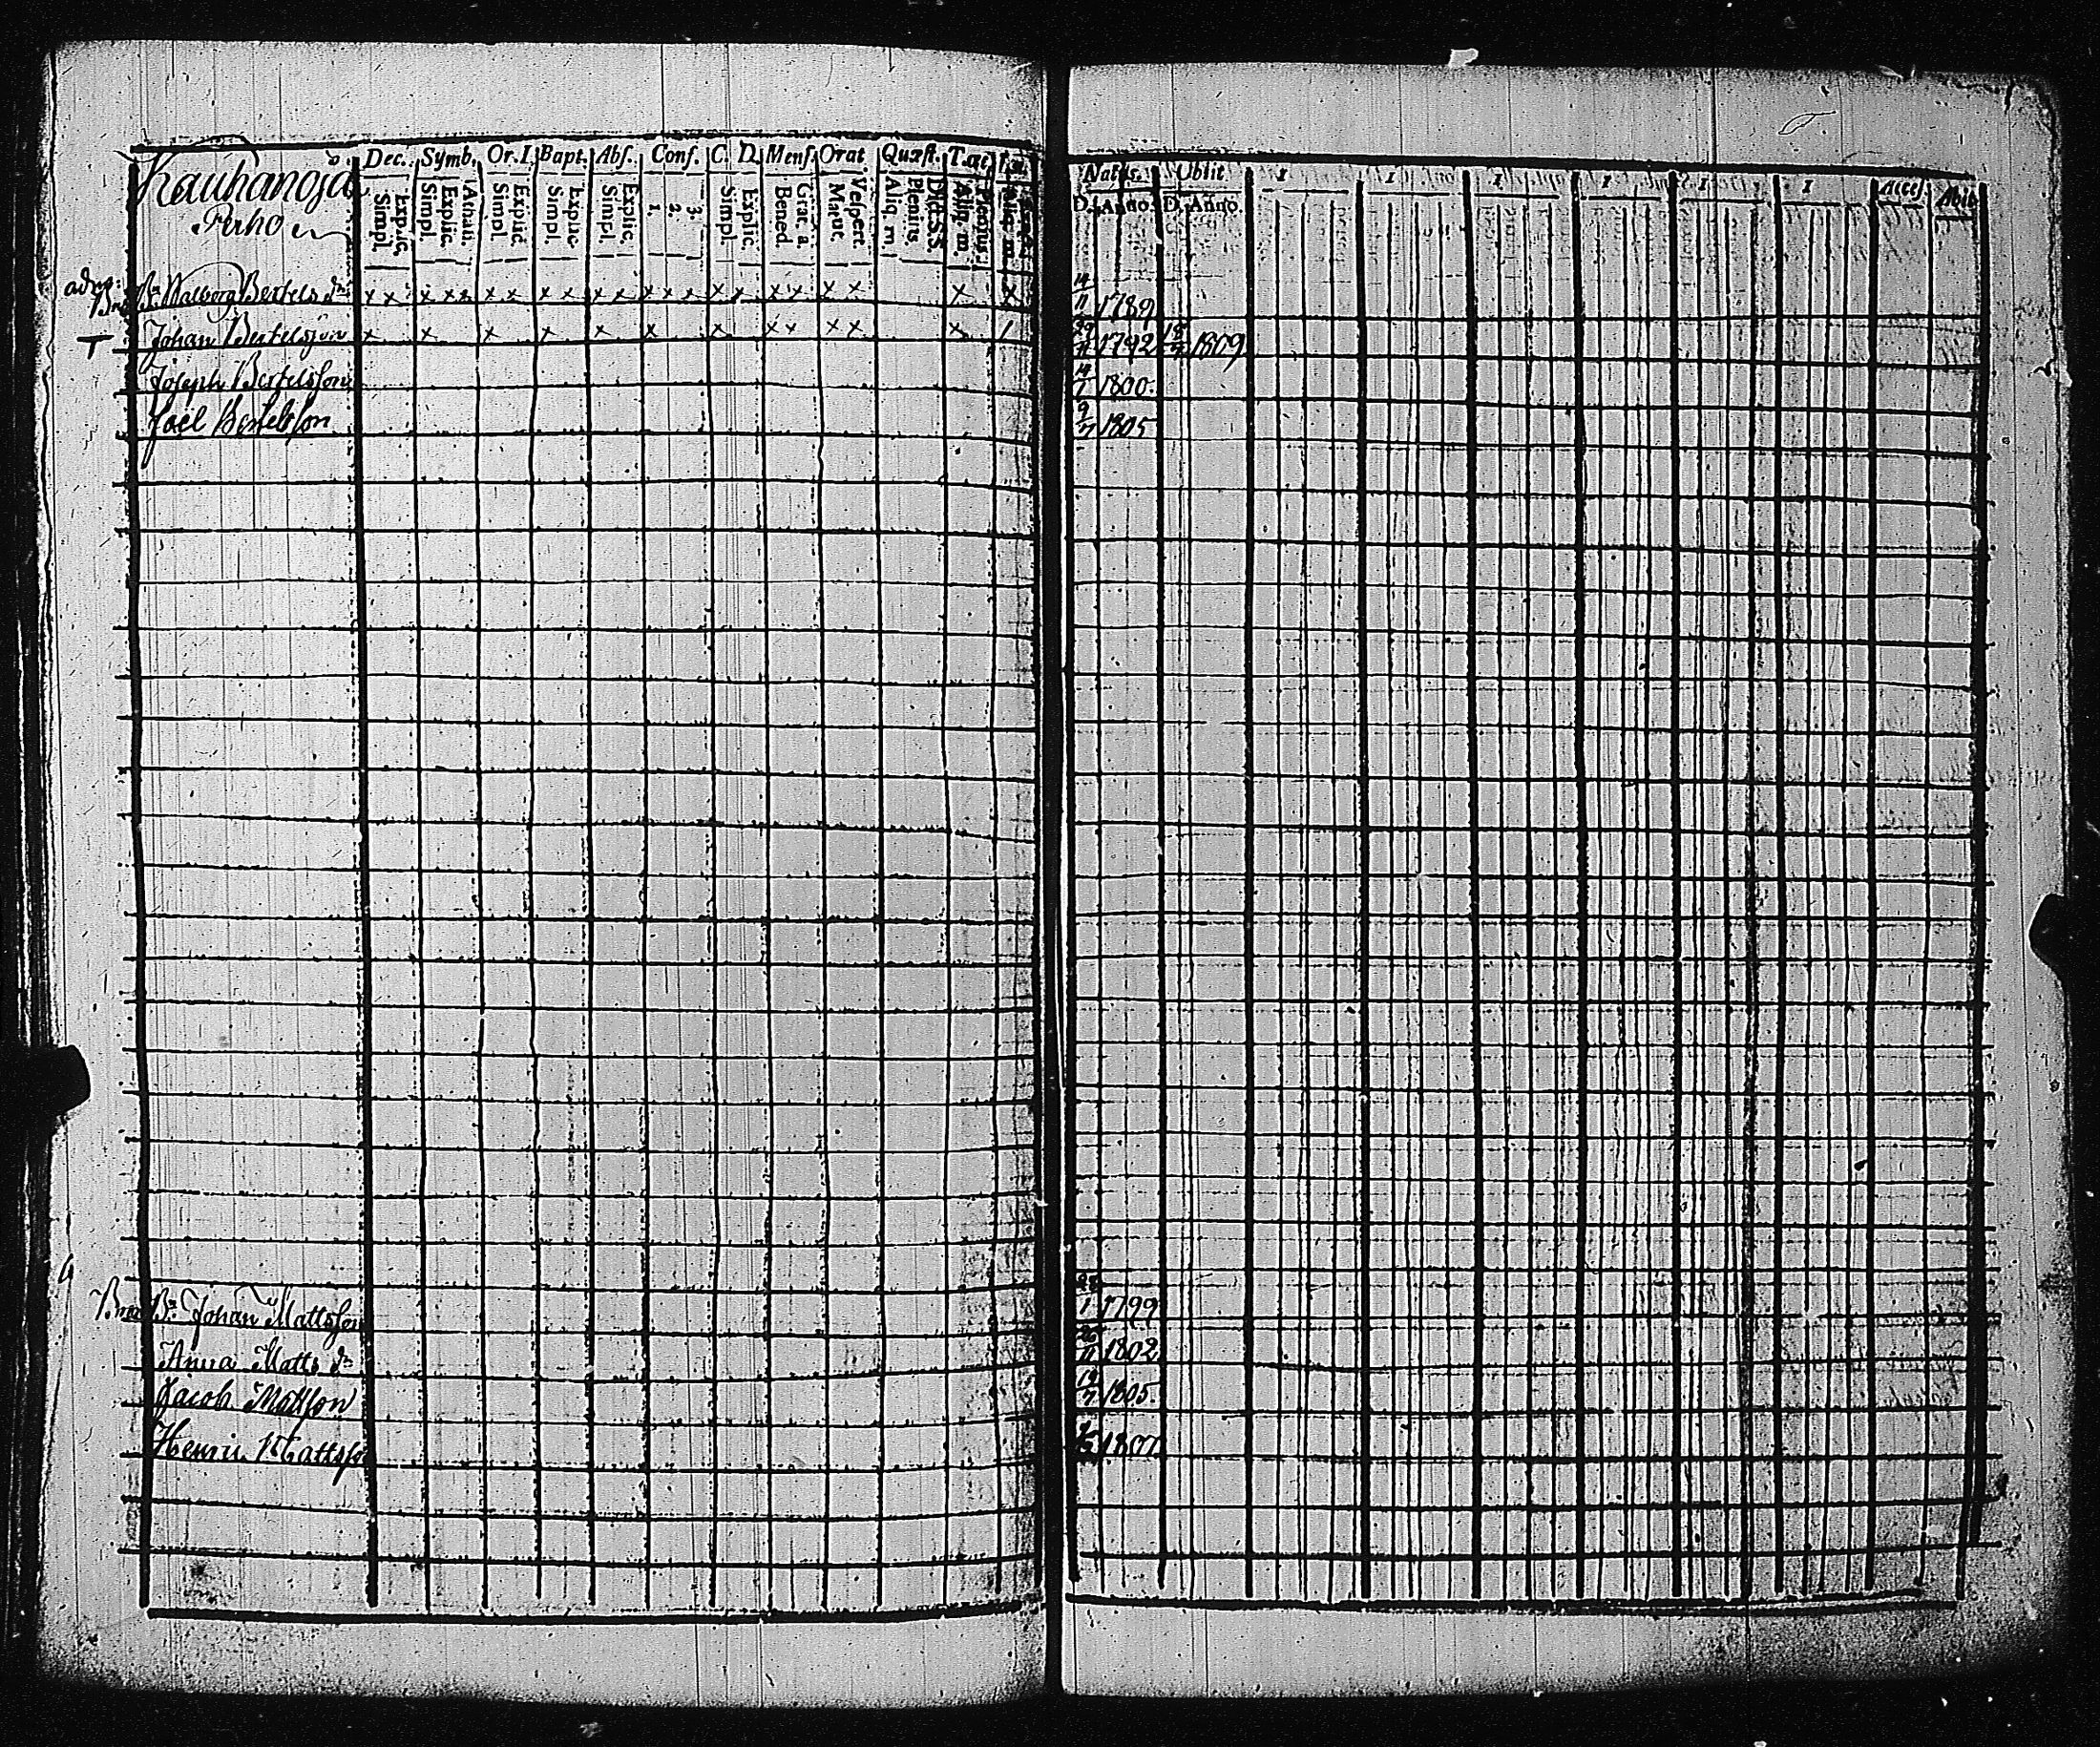 Kauhanoja
Perho
Dec. Symb. Or. I. Bapt. Abs. Conf. C. D. Mens. Orat Quæst. T. æt.
Simpl. Explic. Simpl. Explic. Athan. Simpl. Explic. Simpl. Explic. Simpl. Explic. 1. 2. 3. Simpl. Explic. Bened. Grat. a. Matut. Vespert. Aliq. m. Plenius. Dict. S.S. Aliq. m. Plenius. Aliq. m.
Natus. Obiit 1 1 1 1 1 1 Access. Abit
D. Anno D. Anno
Bn Walborg Bertels dr x x x x x x x x x x x x x x x x x x x x x x 14/11 1789
T Johan Bertelsson x x x x x x x x x x x x / 29/11 1792 1809
Joseph Bertelsson 14/7 1800.
Joel Bertelsson 9/7 1805
Bn Johan Mattsson 1 1799
Anna Matts dr 26/11 1802
Jacob Mattson 19/7 1805.
Henric Mattss 1807